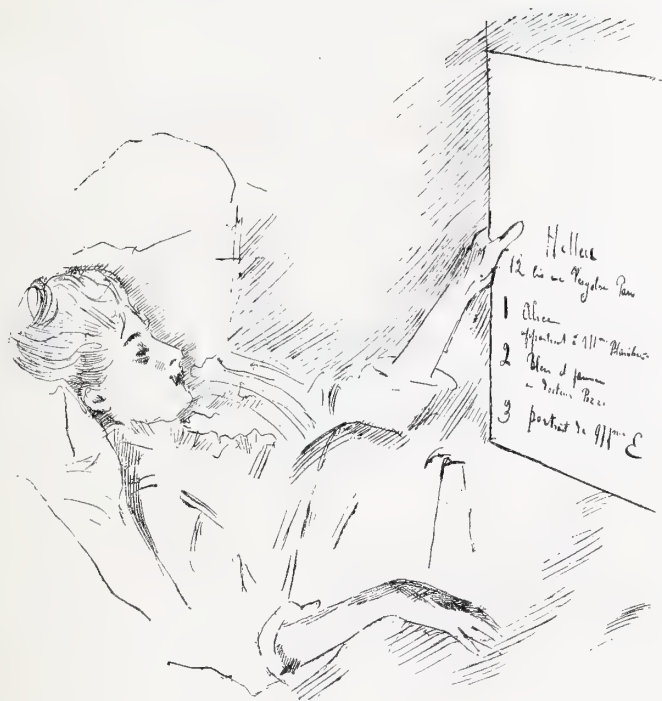 Helleu
12 bis rue Paris
1 Alice
appartient à Mme
2 Bleu et
au docteur Pozzi
3 portrait de Mme E